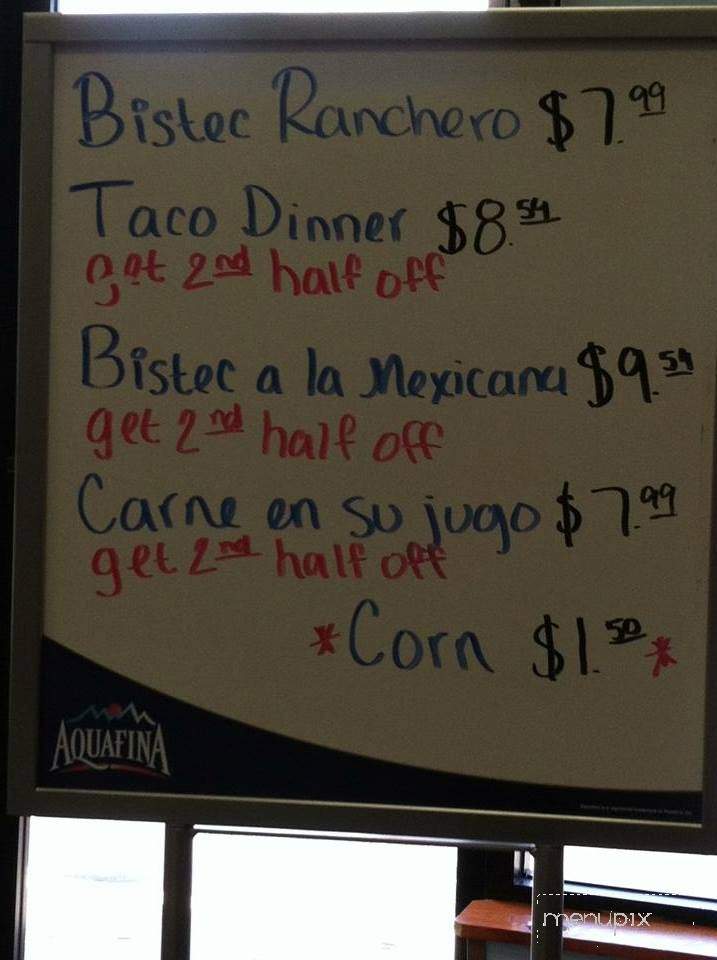 Bistec Ranchero $7.99
Taco Dinner $8.54
get 2nd half off
Bistec a la Mexicana $9.54
get 2nd half off
Carne en su jugo $7.99
get 2nd half off
*Corn $1.50*
AQUAFINA
menupix